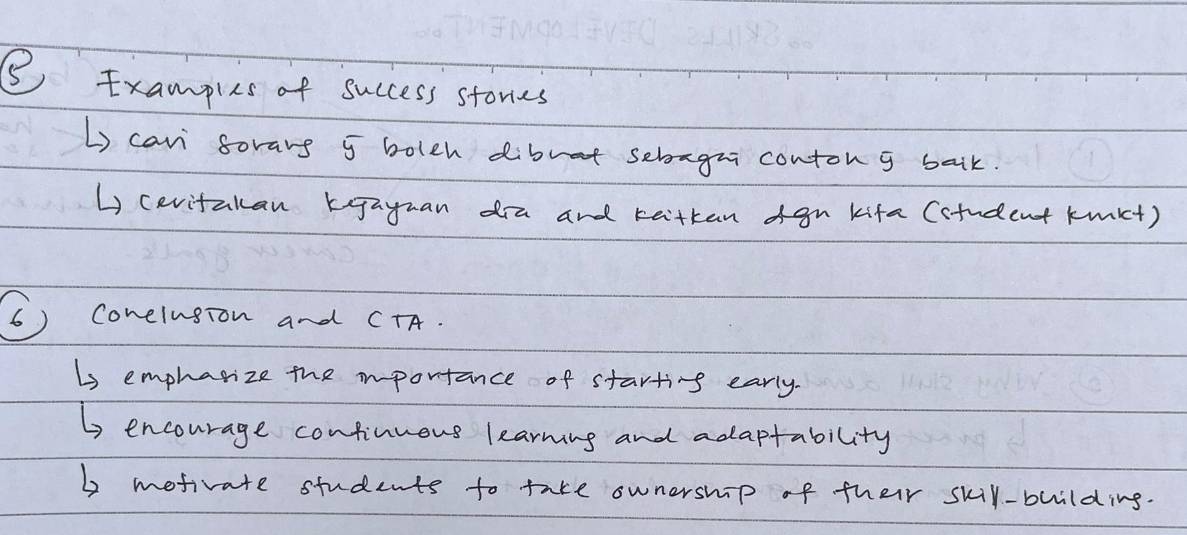 5 Examples of success stories
↳ cari sorang ȳ boleh dibuat sebagai contoh ȳ baik.
↳ ceritakan kejayaan dia and kaitkan dgn kita (student kmkt)
6 Conclusion and CTA.
↳ emphasize the importance of starting early.
↳ encourage continuous learning and adaptability
↳ motivate students to take ownership of their skill-building.